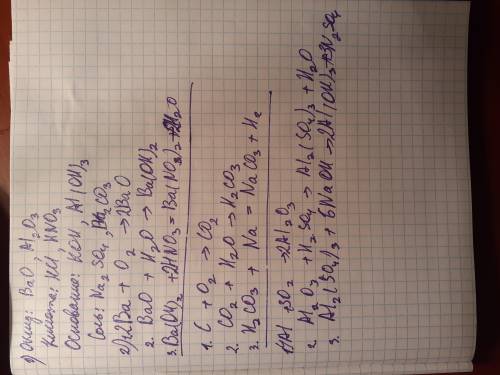 1) Оксид: BaO Al2O3
Кислота: HCl, HNO3
Основание: KOH, Al(OH)3
Соль: Na2SO4, Na2CO3
2) 1. 2Ba + O2 → 2BaO
2. BaO + H2O → Ba(OH)2
3. Ba(OH)2 + 2HNO3 = Ba(NO3)2 + 2H2O
1. C + O2 → CO2
2. CO2 + H2O → H2CO3
3. H2CO3 + Na = NaCO3 + H2
1. 4Al + 3O2 → 2Al2O3
2. Al2O3 + H2SO4 → Al2(SO4)3 + H2O
3. Al2(SO4)3 + 6NaOH → 2Al(OH)3 + 3Na2SO4